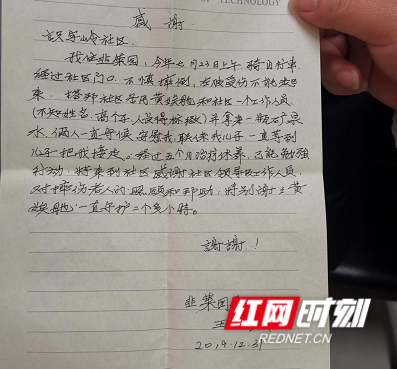 OF TECHNOLOGY
感谢
识字岭社区
我住韭菜园，今年七月23日上午，骑自行车
经过社区门口，不慎摔倒，左腿受伤不能起
来，搭邦社区居民黄焕 和社区一个工作人员
(不知姓名，高个子人长得标致)并拿来一瓶矿泉
水，俩人一直守候安慰我，联系我儿子一直等到
儿子把我接走。经过五个月治疗休养，已能勉强
行动，特来到社区感谢社区领导及工作人员，
对摔伤老人的照顾和邦助，特别谢谢黄
焕 一直守护二个多小时。
謝謝！
韭菜园
王
2019.12.31
红网时刻
REDNET.CN